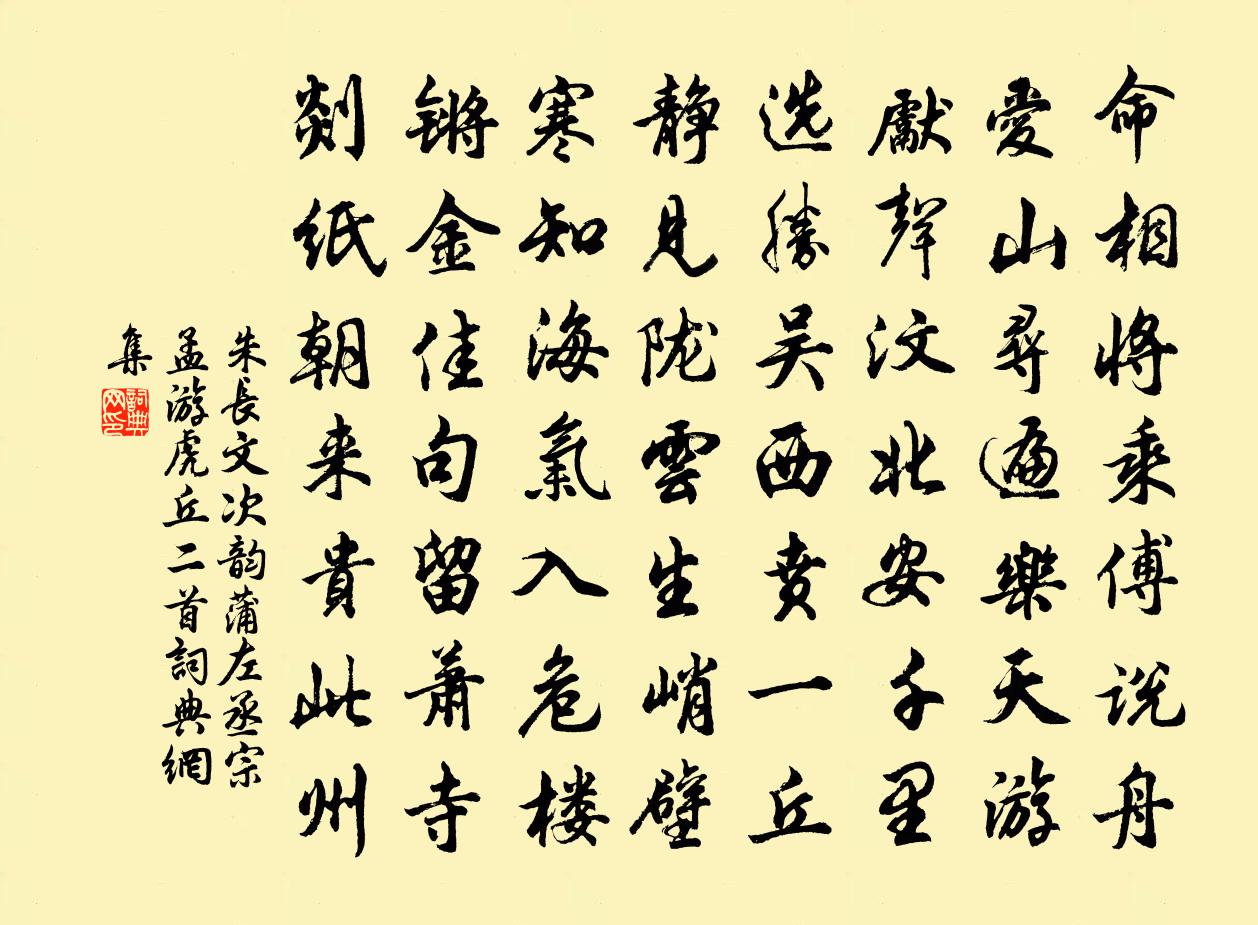 命相将乘傅说舟
愛山尋遍樂天游
獻聲汶北安千里
选勝吴西贲一丘
静見陇雲生峭壁
寒知海氣入危楼
锵金佳句留萧寺
剡纸朝来貴此州
朱長文次韵蒲左丞宗
孟游虎丘二首詞典網
集
詞典网印